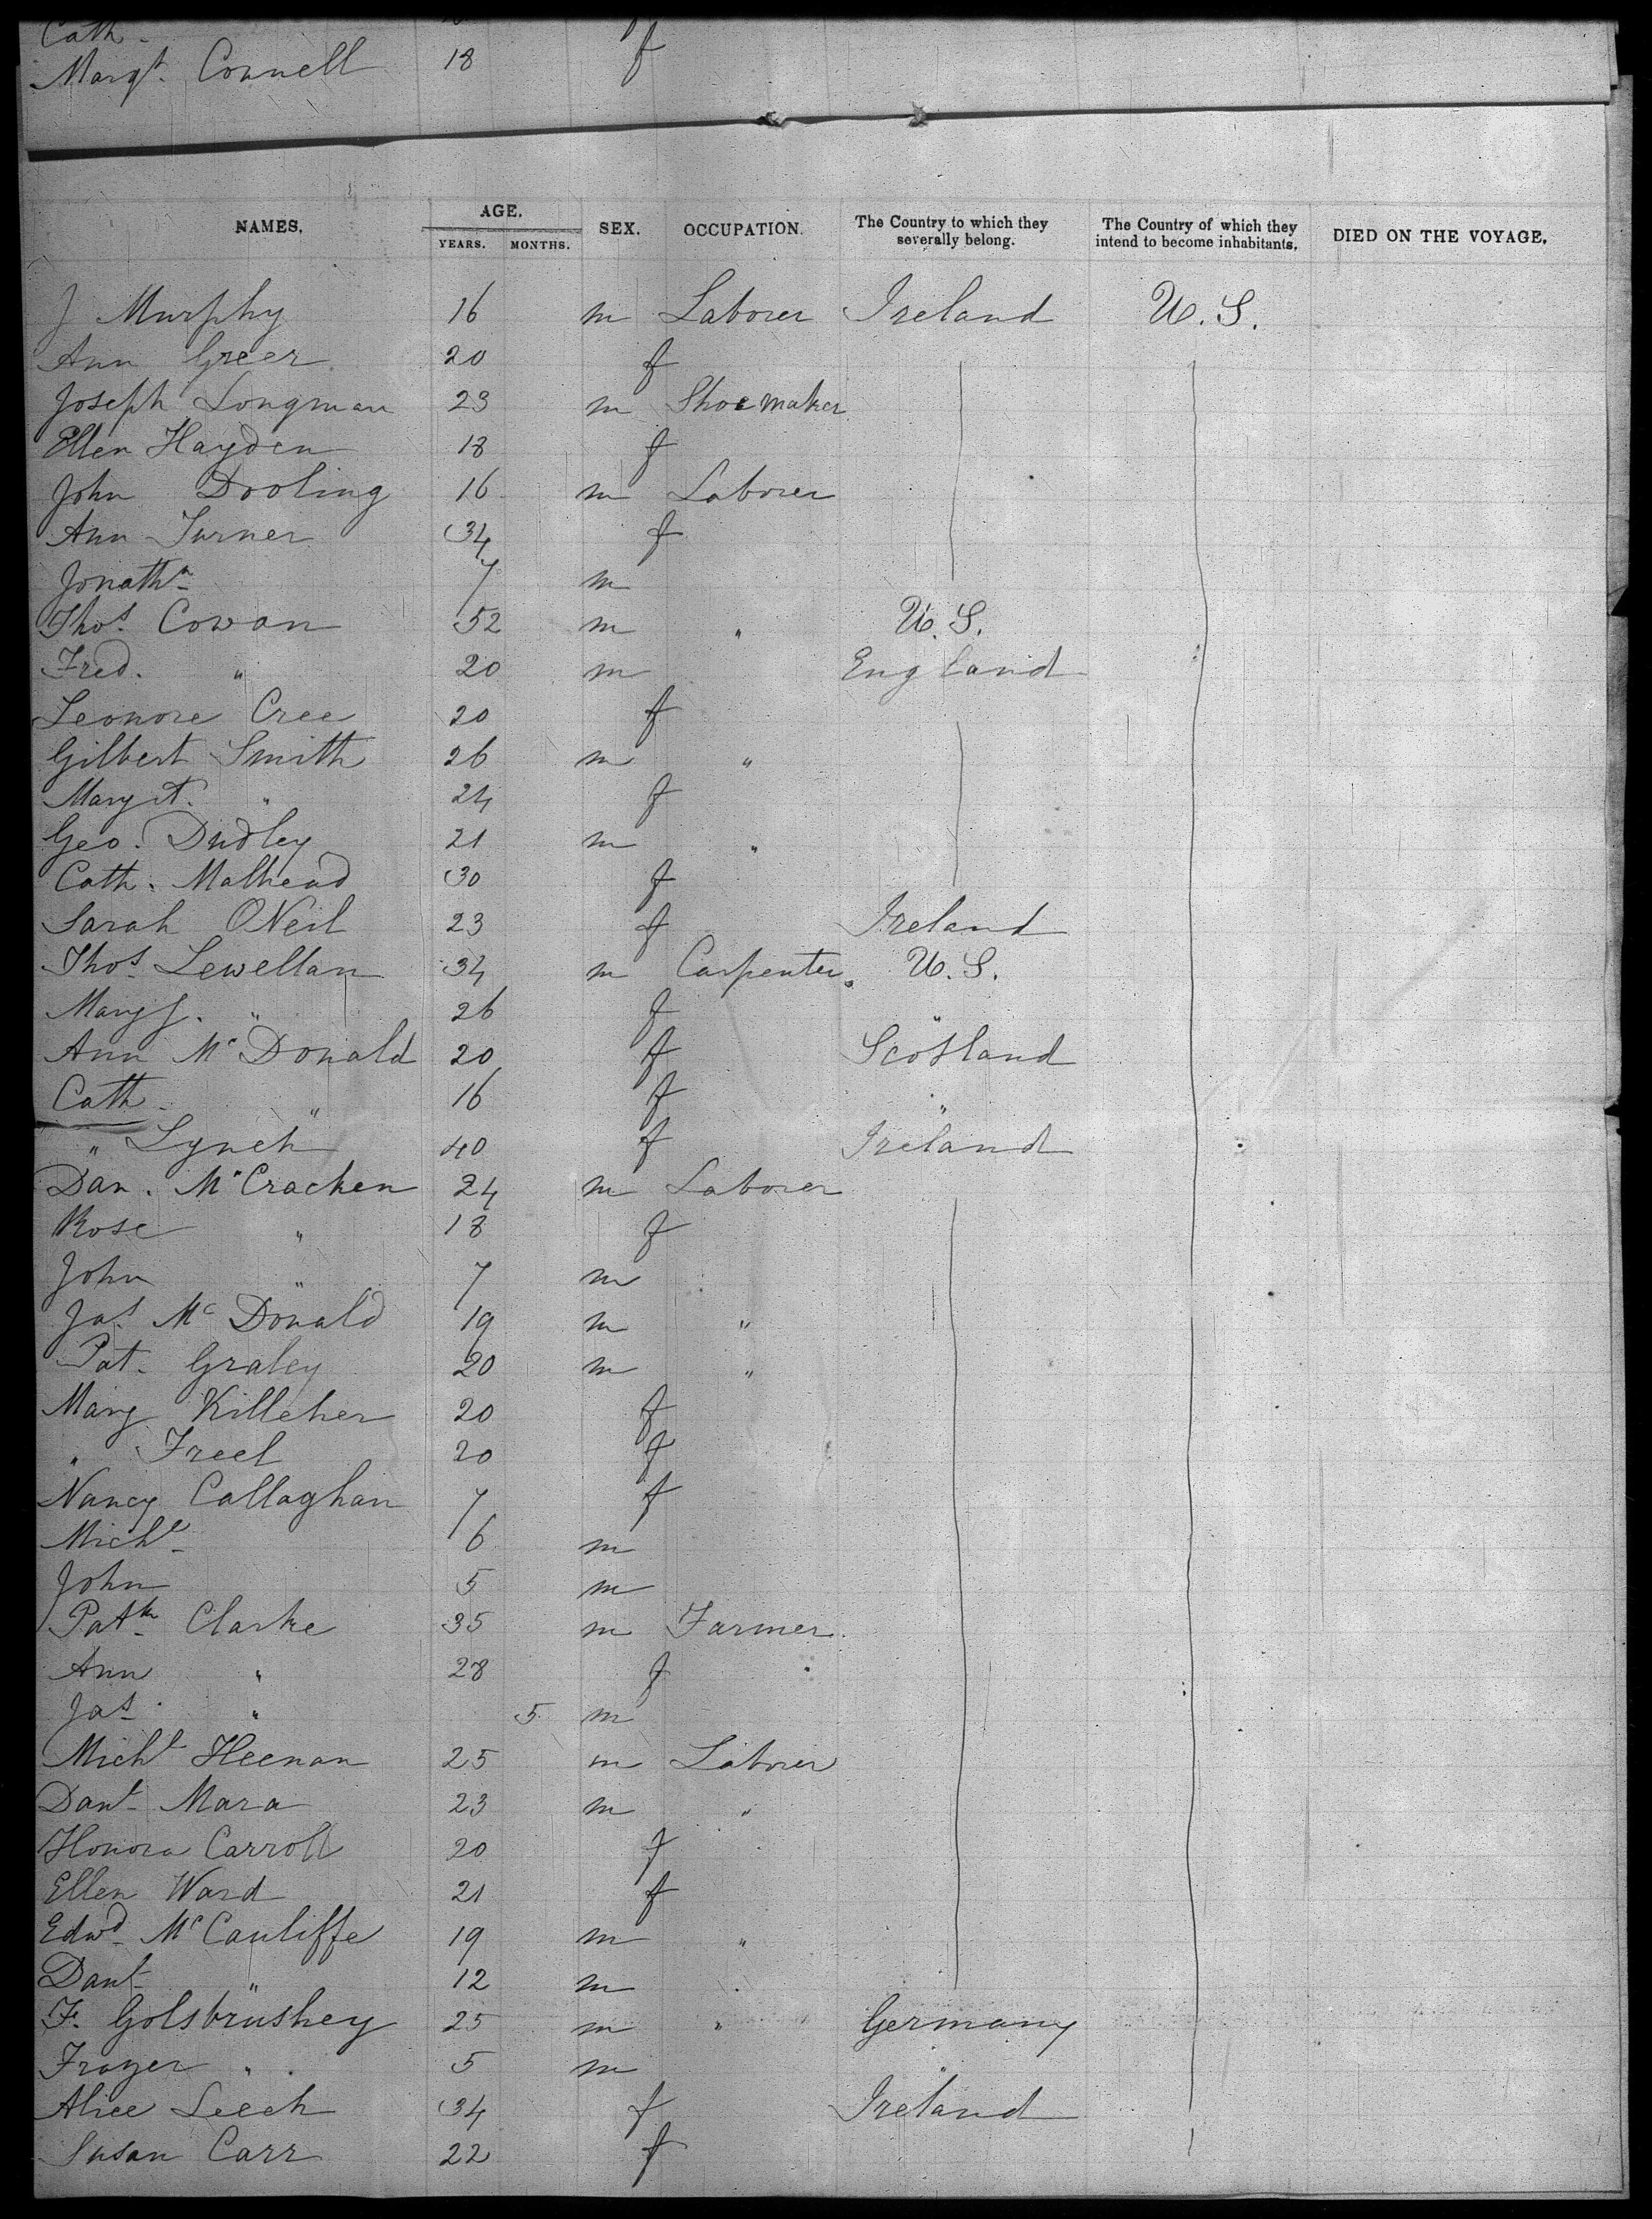 Cath.
Margt. Connell 18 f
NAMES. AGE. YEARS. MONTHS. SEX. OCCUPATION. The Country to which they severally belong. The Country of which they intend to become inhabitants. DIED ON THE VOYAGE.
J Murphy 16 m Laborer Ireland U.S.
Ann Greer 20 f
Joseph Longman 23 m Shoemaker
Ellen Hayden 18 f
John Dooling 16 m Laborer
Ann Turner 34 f
Jonathn 7 m
Thos Cowan 52 m " U.S.
Fred. " 20 m England
Leonore Cree 20 f
Gilbert Smith 26 m "
Margt. " 24 f
Geo. Dudley 21 m "
Cath. Malhead 30 f
Sarah ONeil 23 f Ireland
Thos Lewellan 34 m Carpenter U.S.
Mary J. " 26 f "
Ann McDonald 20 f Scotland
Cath. " 16 f "
" Lynch 40 f Ireland
Dan. McCracken 24 m Laborer
Rose " 18 f
John " 7 m
Jas McDonald 19 m "
Pat. Graley 20 m "
Mary Killeher 20 f
" Freel 20 f
Nancy Callaghan 7 f
Michl 6 m
John 5 m
Patk Clarke 35 m Farmer
Ann " 28 f
Jas " 5 m
Michl Heenan 25 m Laborer
Danl Mara 23 m "
Honora Carroll 20 f
Ellen Ward 21 f
Edwd McCauliffe 19 m "
Danl " 12 m
F. Golsbrushey 25 m " Germany
Frazer " 5 m "
Alice Leech 34 f Ireland
Susan Carr 22 f